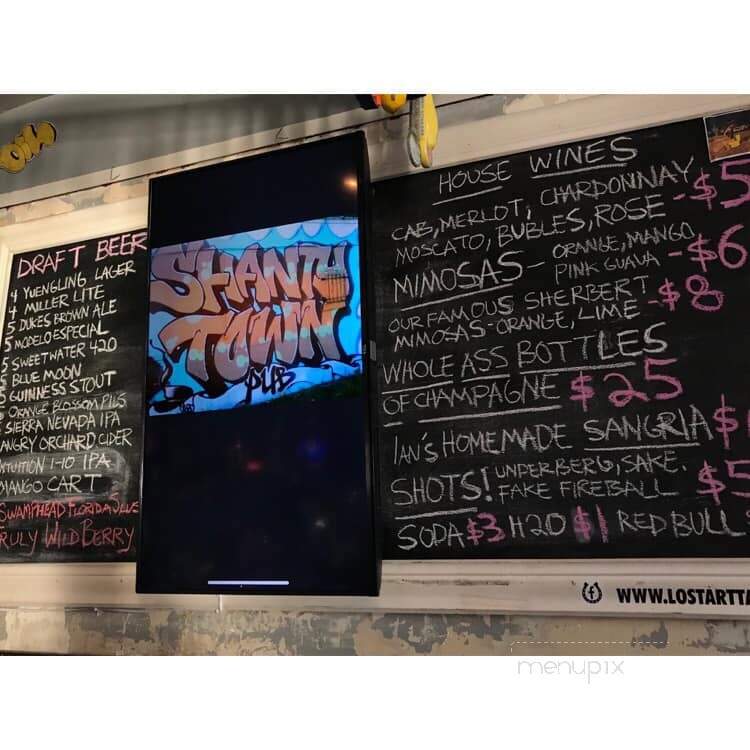 DRAFT BEER
4 YUENGLING LAGER
4 MILLER LITE
5 DUKES BROWN ALE
5 MODELO ESPECIAL
5 SWEETWATER 420
5 BLUE MOON
5 GUINNESS STOUT
ORANGE BLOSSOM PILS
SIERRA NEVADA IPA
ANGRY ORCHARD CIDER
INTUITION I-10 IPA
MANGO CART
SWAMPHEAD FLORIDA
RULY WILD BERRY
SHANTY
TOWN
PUB
HOUSE WINES
CAB, MERLOT, CHARDONNAY
MOSCATO, BUBLES, ROSE -$5
MIMOSAS- ORANGE, MANGO,
PINK GUAVA -$6
OUR FAMOUS SHERBERT
MIMOSAS-ORANGE, LIME -$8
WHOLE ASS BOTTLES
OF CHAMPAGNE $25
IAN'S HOMEMADE SANGRIA $
SHOTS! UNDERBERG, SAKE.
FAKE FIREBALL $5
SODA $3 H2O $1 RED BULL
WWW.LOSTARTTA
menupix